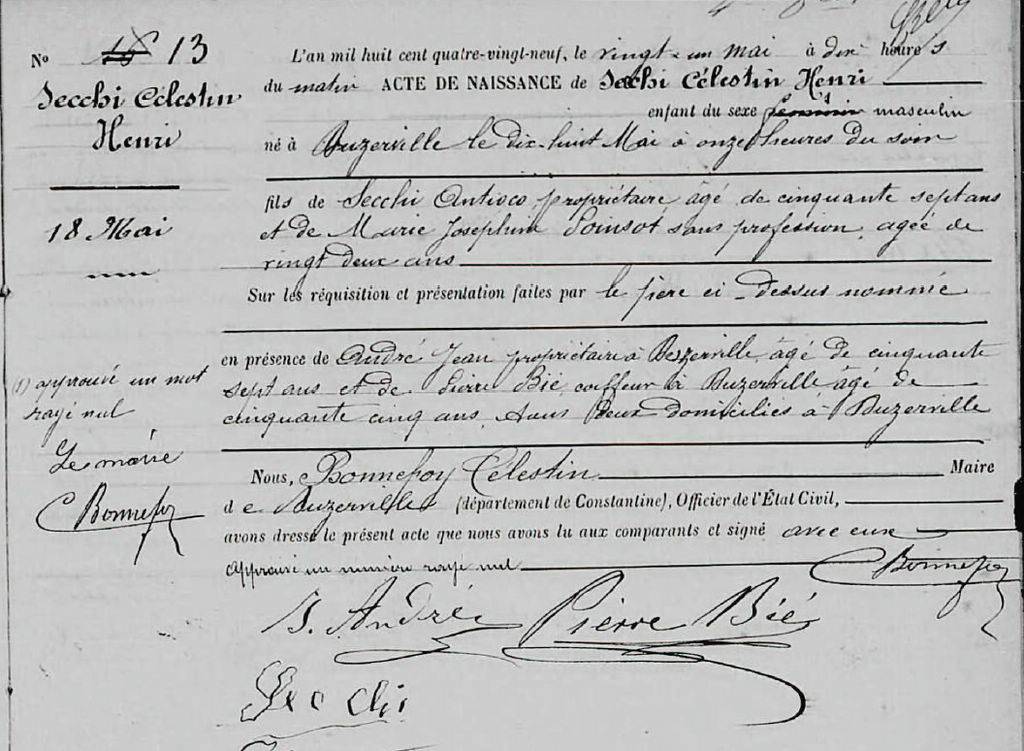 N° 13
Secchi Célestin
Henri
18 Mai
(1) approuvé un mot
rayé nul
Le maire
C Bonnefoy
L'an mil huit cent quatre-vingt-neuf, le vingt-un mai à dix heures
du matin ACTE DE NAISSANCE de Secchi Célestin Henri
enfant du sexe féminin masculin
né à Duzerville le dix-huit Mai à onze heures du soir
fils de Secchi Antioco propriétaire âgé de cinquante sept ans
et de Marie Josephine Poinsot sans profession, agée de
vingt deux ans
Sur les réquisition et présentation faites par le père ci-dessus nommé
en présence de André Jean propriétaire à Duzerville, âgé de cinquante
sept ans et de Pierre Bié, coiffeur à Duzerville âgé de
cinquante cinq ans, tous deux domiciliés à Duzerville
Nous, Bonnefoy Célestin Maire
de Duzerville (département de Constantine), Officier de l'État Civil,
avons dressé le présent acte que nous avons lu aux comparants et signé avec eux
Approuvé un numéro rayé nul C Bonnefoy
J. André Pierre Bié
Secchi